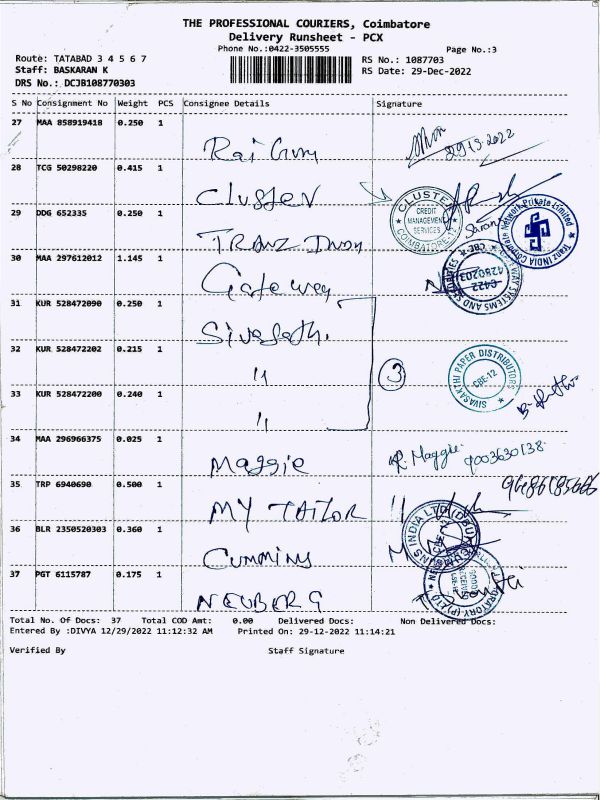 THE PROFESSIONAL COURIERS, Coimbatore
Delivery Runsheet - PCX
Phone No.:0422-3505555
Page No.:3
Route: TATABAD 3 4 5 6 7
RS No.: 1087703
Staff: BASKARAN K
RS Date: 29-Dec-2022
DRS No.: DCJB108770303
S No Consignment No Weight PCS Consignee Details Signature
27 MAA 858919418 0.250 1
28 TCG 50298220 0.415 1
Cluster
CLUSTER
CREDIT MANAGEMENT SERVICES
COIMBATORE-12
29 DDG 652335 0.250 1
Tranz
Tranz INDIA Corporate Network Private Limited
30 MAA 297612012 1.145 1
Gateway
31 KUR 528472090 0.250 1
32 KUR 528472202 0.215 1
"
3
SIVASAKTHI PAPER DISTRIBUTORS
CBE-12
33 KUR 528472200 0.240 1
"
34 MAA 296966375 0.025 1
Maggie
R. Maggie 9003630138
35 TRP 6940690 0.500 1
MY TAILOR
36 BLR 2350520303 0.360 1
Cummins
37 PGT 6115787 0.175 1
NEUBERG
Total No. Of Docs: 37 Total COD Amt: 0.00 Delivered Docs: Non Delivered Docs:
Entered By :DIVYA 12/29/2022 11:12:32 AM Printed On: 29-12-2022 11:14:21
Verified By Staff Signature